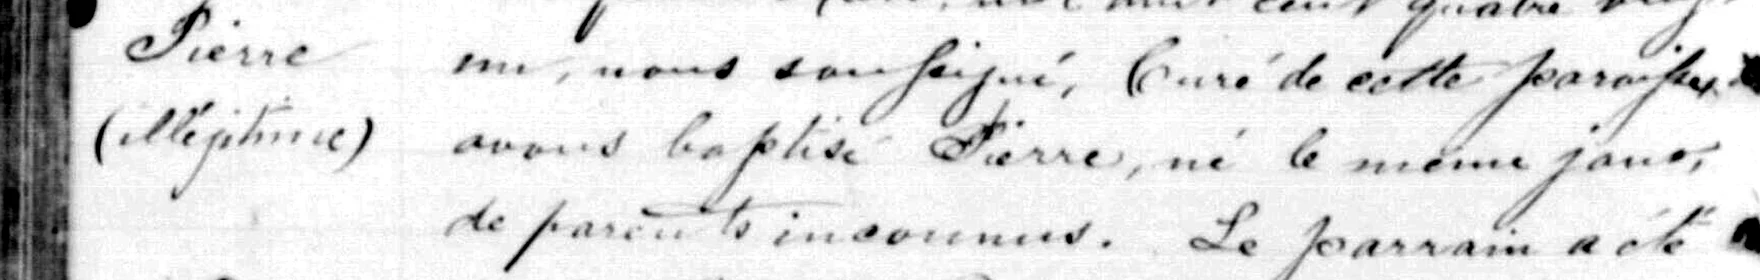 mil huit cent quatre vingt
Pierre
un, nous soussigné, Curé de cette paroisse,
(illégitime)
avons baptisé Pierre, né le même jour,
de parents inconnus. Le parrain a été